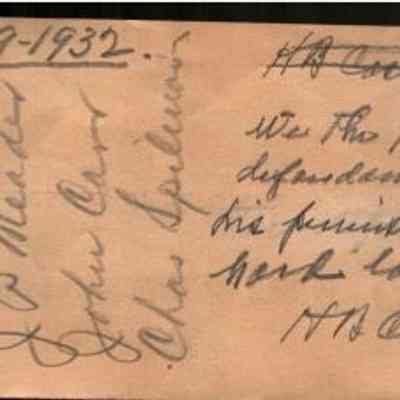 9-1932.
P Meader
John Carr
Chas Spilman
HB Coo
We The
defendan
his
work
HB C